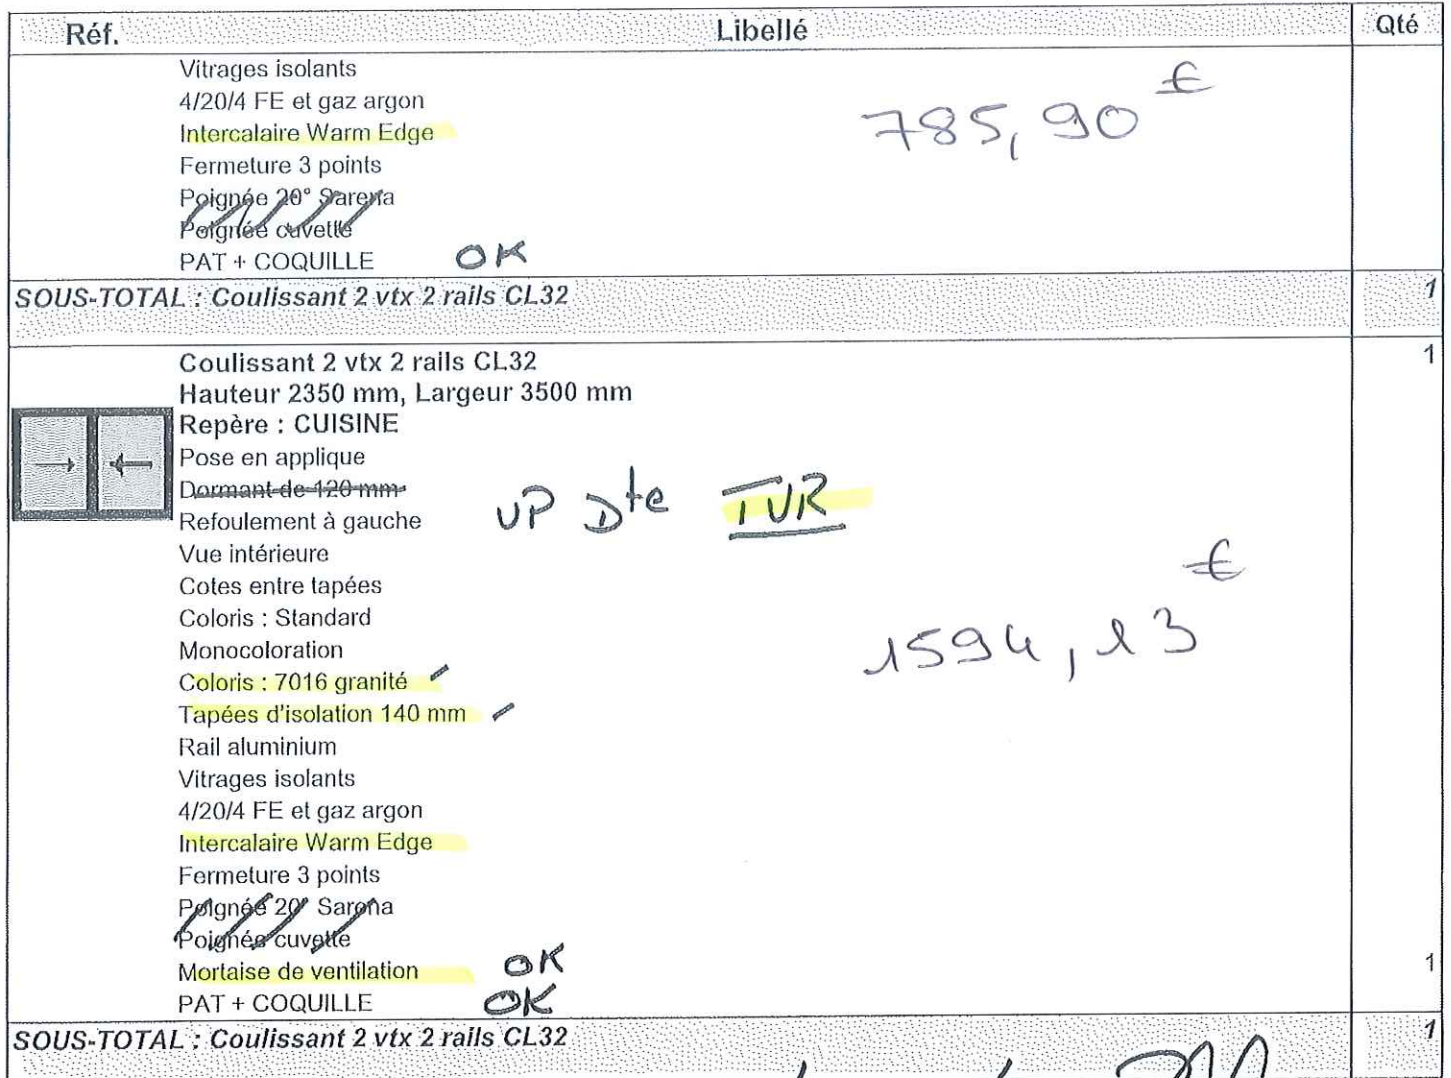 Réf. Libellé Qté
Vitrages isolants
4/20/4 FE et gaz argon
785,90 €
Intercalaire Warm Edge
Fermeture 3 points
Poignée 20° Sarena
Poignée cuvette
PAT + COQUILLE OK
SOUS-TOTAL : Coulissant 2 vtx 2 rails CL32 1
Coulissant 2 vtx 2 rails CL32 1
Hauteur 2350 mm, Largeur 3500 mm
Repère : CUISINE
Pose en applique
Dormant de 120 mm
Refoulement à gauche VP Dte TVR
Vue intérieure
Cotes entre tapées
Coloris : Standard
Monocoloration 1594,13 €
Coloris : 7016 granité
Tapées d'isolation 140 mm
Rail aluminium
Vitrages isolants
4/20/4 FE et gaz argon
Intercalaire Warm Edge
Fermeture 3 points
Poignée 20° Sarena
Poignée cuvette
Mortaise de ventilation OK 1
PAT + COQUILLE OK
SOUS-TOTAL : Coulissant 2 vtx 2 rails CL32 1